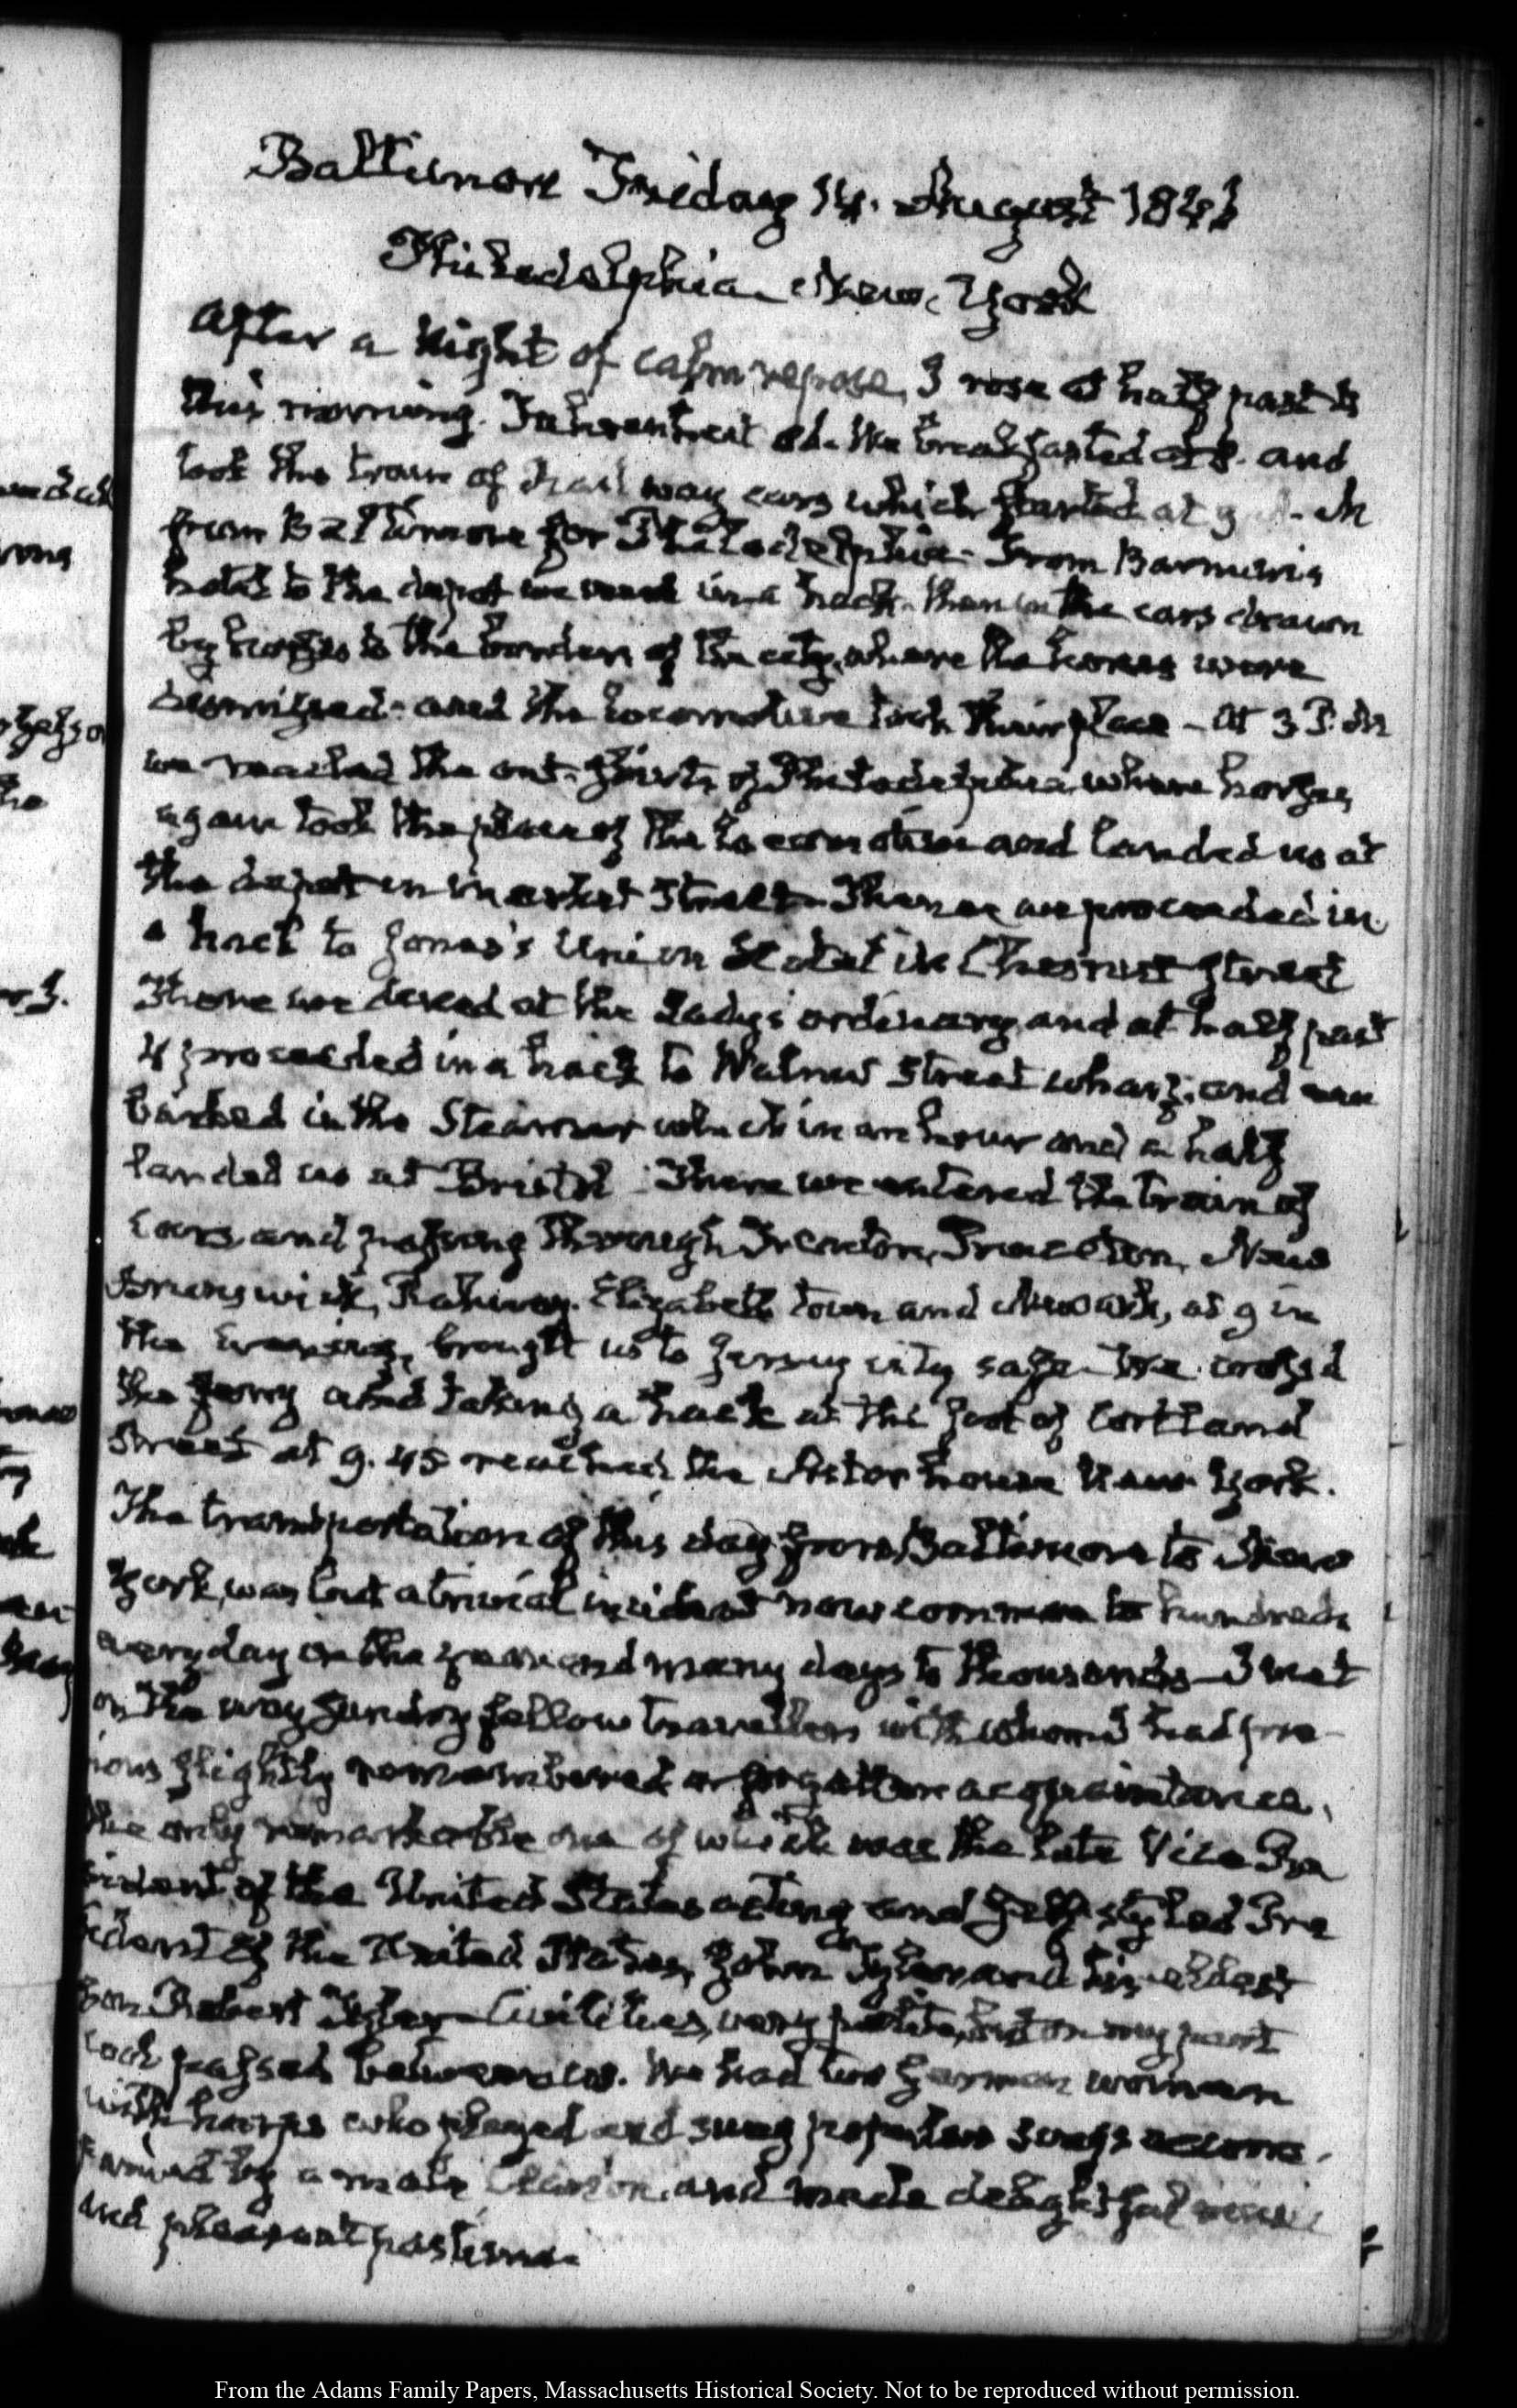 Baltimore Friday 14. August 184
Philadelphia New-York
After a Night of calm repose, I rose at half past
this morning. Fahrenheit We breakfasted at 8. and
took the train of rail way cars which started at 9 A.M
from Baltimore for Philadelphia- From Barnum's
hotel to the depot we went in a hack, then in the cars drawn
by horses to the borders of the city, where the horses were
dismissed and the locomotive took their place - At 3 P.M
we reached the out-skirts of Philadelphia where horses
again took the place of the locomotive and landed us at
the depot in Market Street- Thence we proceeded in
a hack to Jones's Union Hotel in Chesnut Street
There we dined at the Lady's ordinary and at half past
4 proceeded in a hack to Walnut Street wharf, and em
barked in the Steamer which in an hour and a half
landed us at Bristol There we entered the train of
cars and passing through Trenton, Princeton, New
Brunswick, Rahway, Elizabeth town and Newark, at 9 in
the evening, brought us to Jersey city safe We crossed
the ferry and taking a hack at the foot of Cortland
Street at 9.45 reached the Astor house New York.
The transportation of this day from Baltimore to New
York, was but a trivial incident now common to hundreds
every day in the year and many days to thousands- I met
on the way sundry fellow travellers with whom I had pre-
ious slightly remembered or forgotten acquaintance,
the only remarkable one of which was the late Vice Pre
sident of the United States acting and self styled Pre
sident of the United States, John Tyler and his eldest
son Robert Tyler- Civilities, very polite, but on my part
cool passed between us. We had two German women
with harps who played and sung popular songs accom-
panied by a male and made delightful music
and pleasant pastime.